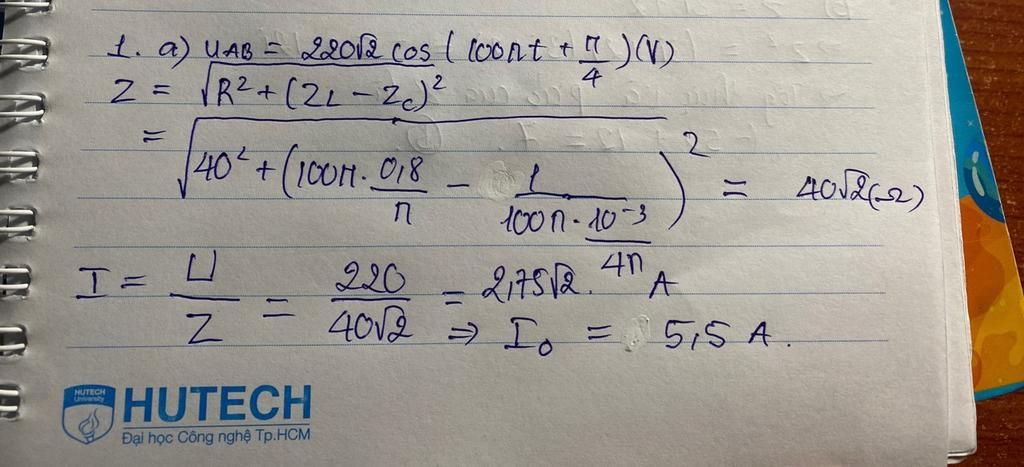 1. a) UAB = 220√2 cos (100πt + π/4) (V)
Z = √R² + (ZL − Zc)²
= √40² + (100π. 0,8/π − 1/(100π. 10⁻³/4π))² = 40√2(Ω)
I = U/Z = 220/40√2 = 2,75√2. A
⇒ I₀ = 5,5 A.
HUTECH University
HUTECH
Đại học Công nghệ Tp.HCM